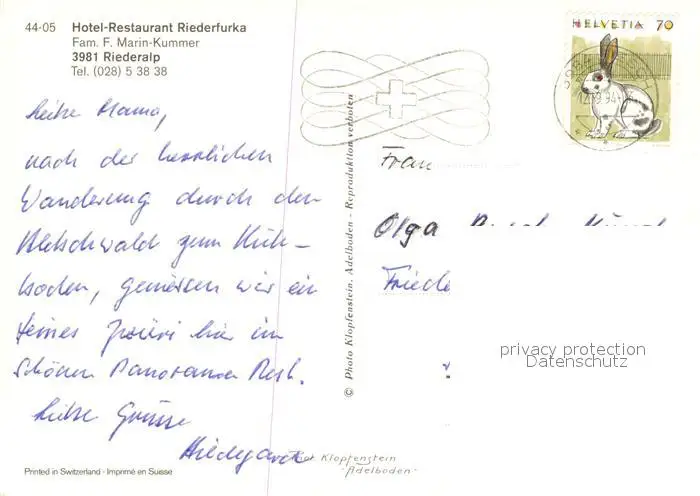 44-05 Hotel-Restaurant Riederfurka
Fam. F. Marin-Kummer
3981 Riederalp
Tel. (028) 5 38 38
HELVETIA 70
12.9.94
Liebe Mama,
nach der herrlichen
Wanderung durch den
Aletschwald zum Küh-
boden, geniessen wir ein
feines z'vieri hier im
schönen Panorama Rest.
Liebe Grüsse
Hildegard
© Photo Klopfenstein, Adelboden - Reproduktion verboten
Frau
Olga
Friede
privacy protection
Datenschutz
Klopfenstein
-Adelboden-
Printed in Switzerland · Imprimé en Suisse